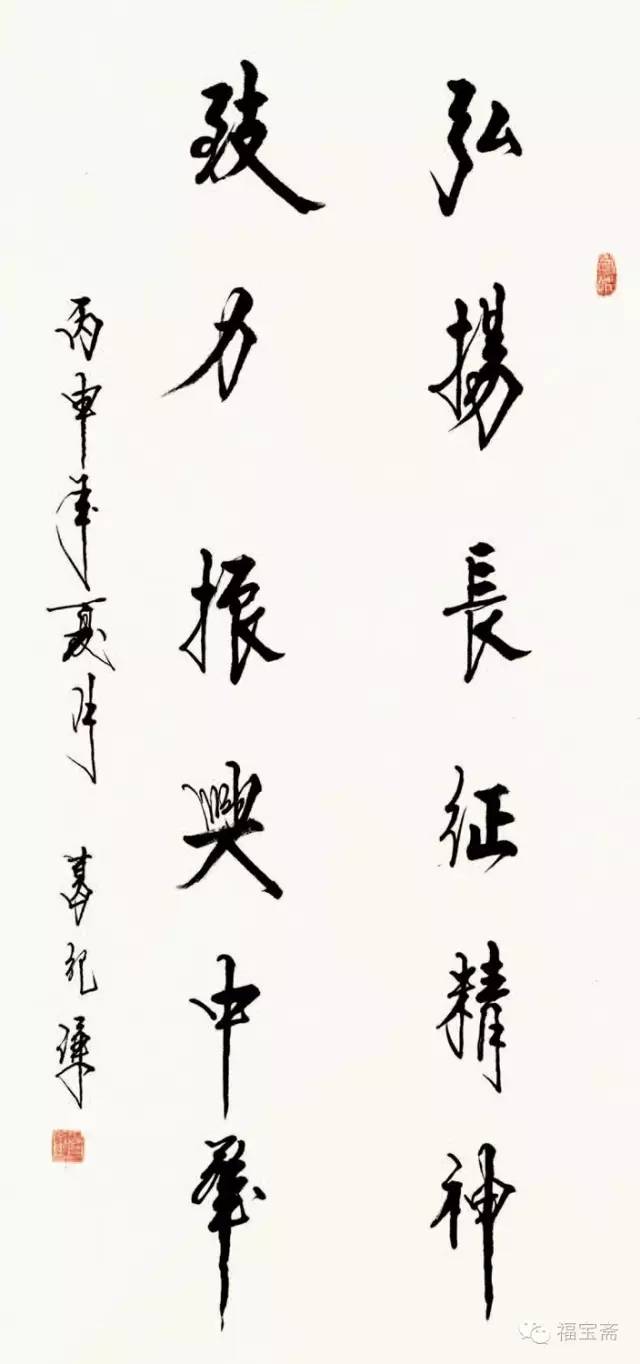 弘揚長征精神
致力振興中華
丙申年夏月
福宝斋